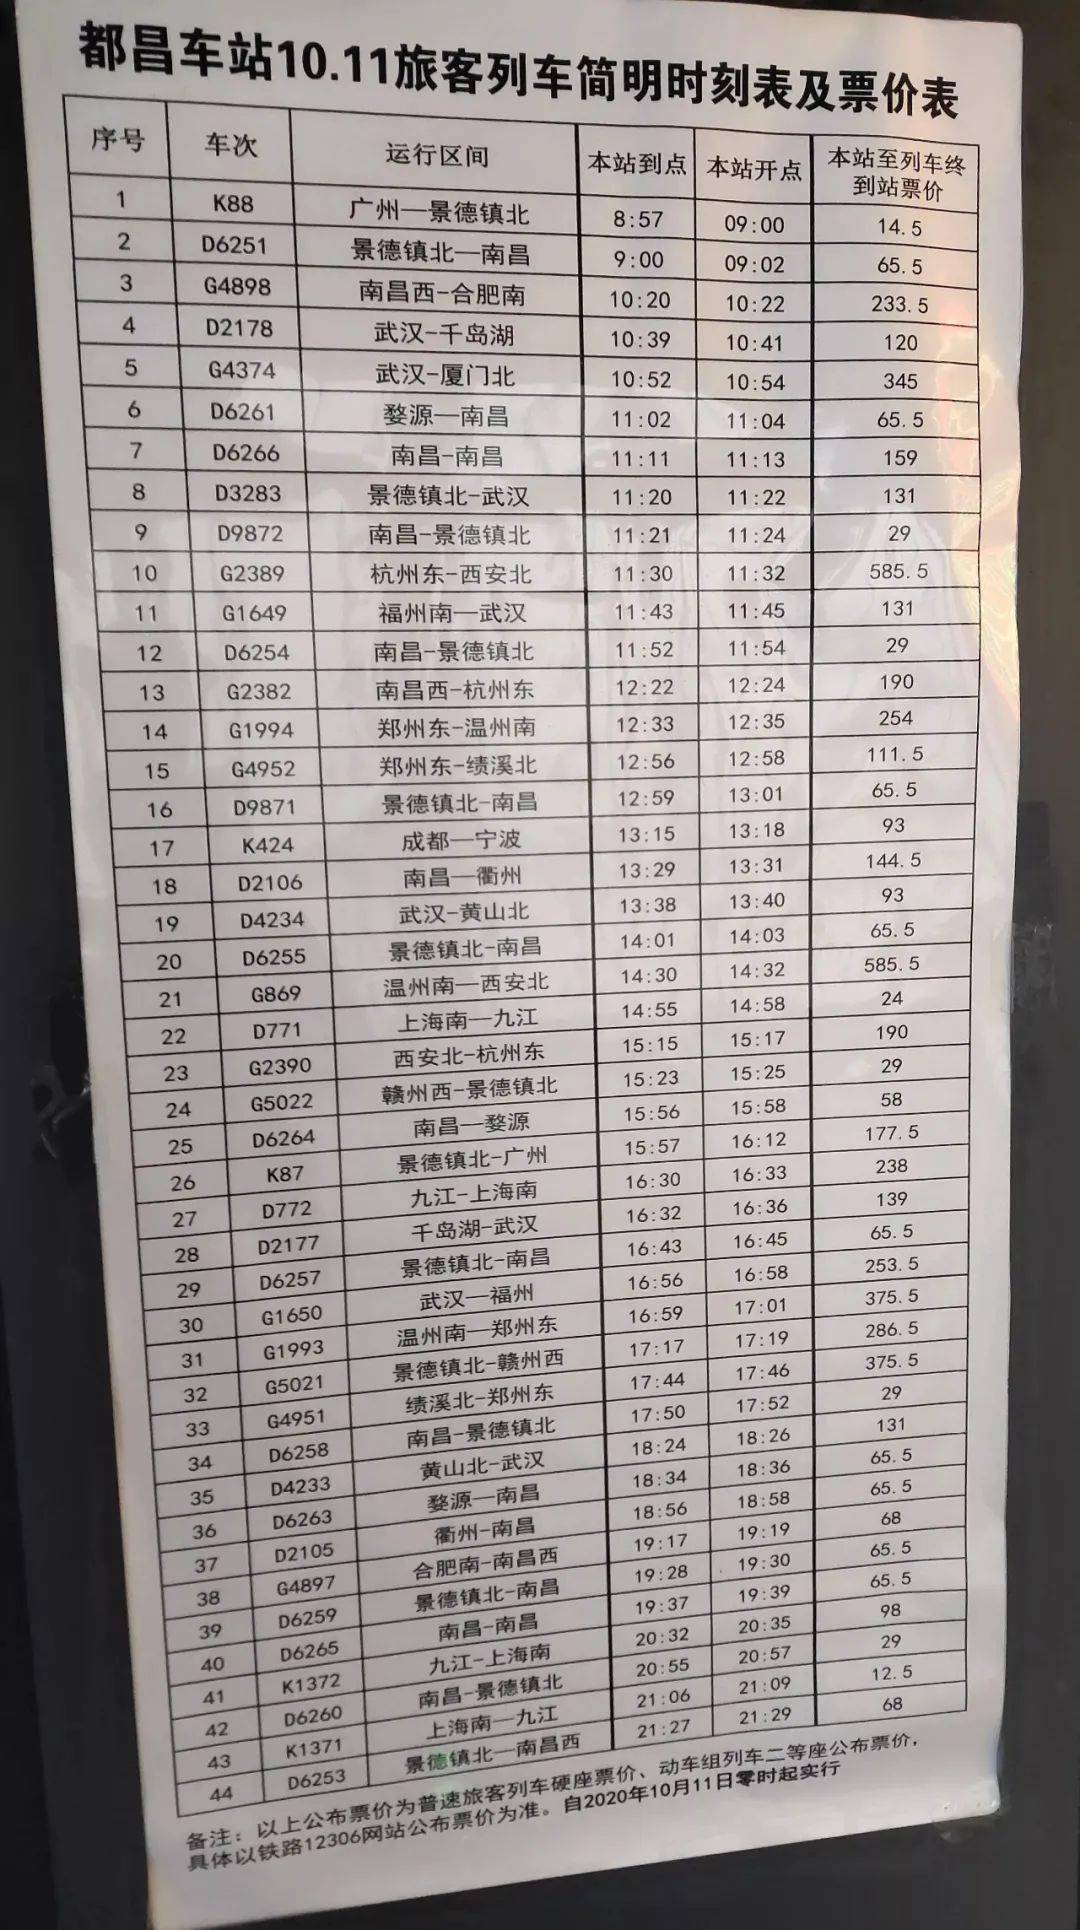 都昌车站10.11旅客列车简明时刻表及票价表
序号 车次 运行区间 本站到点 本站开点 本站至列车终到站票价
1 K88 广州—景德镇北 8:57 09:00 14.5
2 D6251 景德镇北—南昌 9:00 09:02 65.5
3 G4898 南昌西-合肥南 10:20 10:22 233.5
4 D2178 武汉-千岛湖 10:39 10:41 120
5 G4374 武汉-厦门北 10:52 10:54 345
6 D6261 婺源—南昌 11:02 11:04 65.5
7 D6266 南昌-南昌 11:11 11:13 159
8 D3283 景德镇北-武汉 11:20 11:22 131
9 D9872 南昌-景德镇北 11:21 11:24 29
10 G2389 杭州东-西安北 11:30 11:32 585.5
11 G1649 福州南—武汉 11:43 11:45 131
12 D6254 南昌-景德镇北 11:52 11:54 29
13 G2382 南昌西-杭州东 12:22 12:24 190
14 G1994 郑州东-温州南 12:33 12:35 254
15 G4952 郑州东-绩溪北 12:56 12:58 111.5
16 D9871 景德镇北-南昌 12:59 13:01 65.5
17 K424 成都—宁波 13:15 13:18 93
18 D2106 南昌—衢州 13:29 13:31 144.5
19 D4234 武汉-黄山北 13:38 13:40 93
20 D6255 景德镇北-南昌 14:01 14:03 65.5
21 G869 温州南—西安北 14:30 14:32 585.5
22 D771 上海南—九江 14:55 14:58 24
23 G2390 西安北-杭州东 15:15 15:17 190
24 G5022 赣州西-景德镇北 15:23 15:25 29
25 D6264 南昌—婺源 15:56 15:58 58
26 K87 景德镇北-广州 15:57 16:12 177.5
27 D772 九江-上海南 16:30 16:33 238
28 D2177 千岛湖-武汉 16:32 16:36 139
29 D6257 景德镇北-南昌 16:43 16:45 65.5
30 G1650 武汉—福州 16:56 16:58 253.5
31 G1993 温州南—郑州东 16:59 17:01 375.5
32 G5021 景德镇北-赣州西 17:17 17:19 286.5
33 G4951 绩溪北-郑州东 17:44 17:46 375.5
34 D6258 南昌-景德镇北 17:50 17:52 29
35 D4233 黄山北-武汉 18:24 18:26 131
36 D6263 婺源—南昌 18:34 18:36 65.5
37 D2105 衢州-南昌 18:56 18:58 65.5
38 G4897 合肥南-南昌西 19:17 19:19 68
39 D6259 景德镇北-南昌 19:28 19:30 65.5
40 D6265 南昌-南昌 19:37 19:39 65.5
41 K1372 九江-上海南 20:32 20:35 98
42 D6260 南昌-景德镇北 20:55 20:57 29
43 K1371 上海南—九江 21:06 21:09 12.5
44 D6253 景德镇北—南昌西 21:27 21:29 68
备注：以上公布票价为普速旅客列车硬座票价、动车组列车二等座公布票价，
具体以铁路12306网站公布票价为准。自2020年10月11日零时起实行